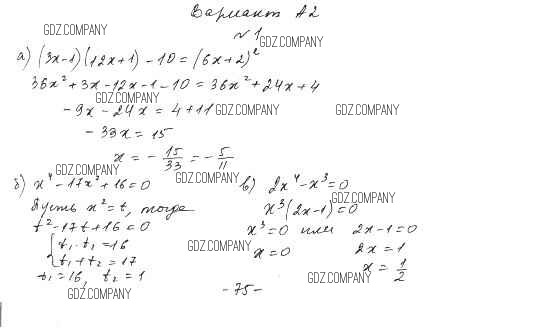 Вариант А2
GDZ.COMPANY
№1
GDZ.COMPANY
а) (3x-1)(12x+1)-10=(6x+2)²
36x²+3x-12x-1-10=36x²+24x+4
GDZ.COMPANY
-9x-24x=4+11
GDZ.COMPANY
GDZ.COMPANY
-33x=15
x=-15/33=-5/11
GDZ.COMPANY
GDZ.COMPANY
б) x⁴-17x²+16=0
Пусть x²=t, тогда
t²-17t+16=0
{t₁·t₁=16
t₁+t₂=17
t₁=16, t₂=1
GDZ.COMPANY
в) 2x⁴-x³=0
GDZ.COMPANY
x³(2x-1)=0
x³=0 или 2x-1=0
GDZ.COMPANY
x=0 2x=1
x=1/2
GDZ.COMPANY
-75-